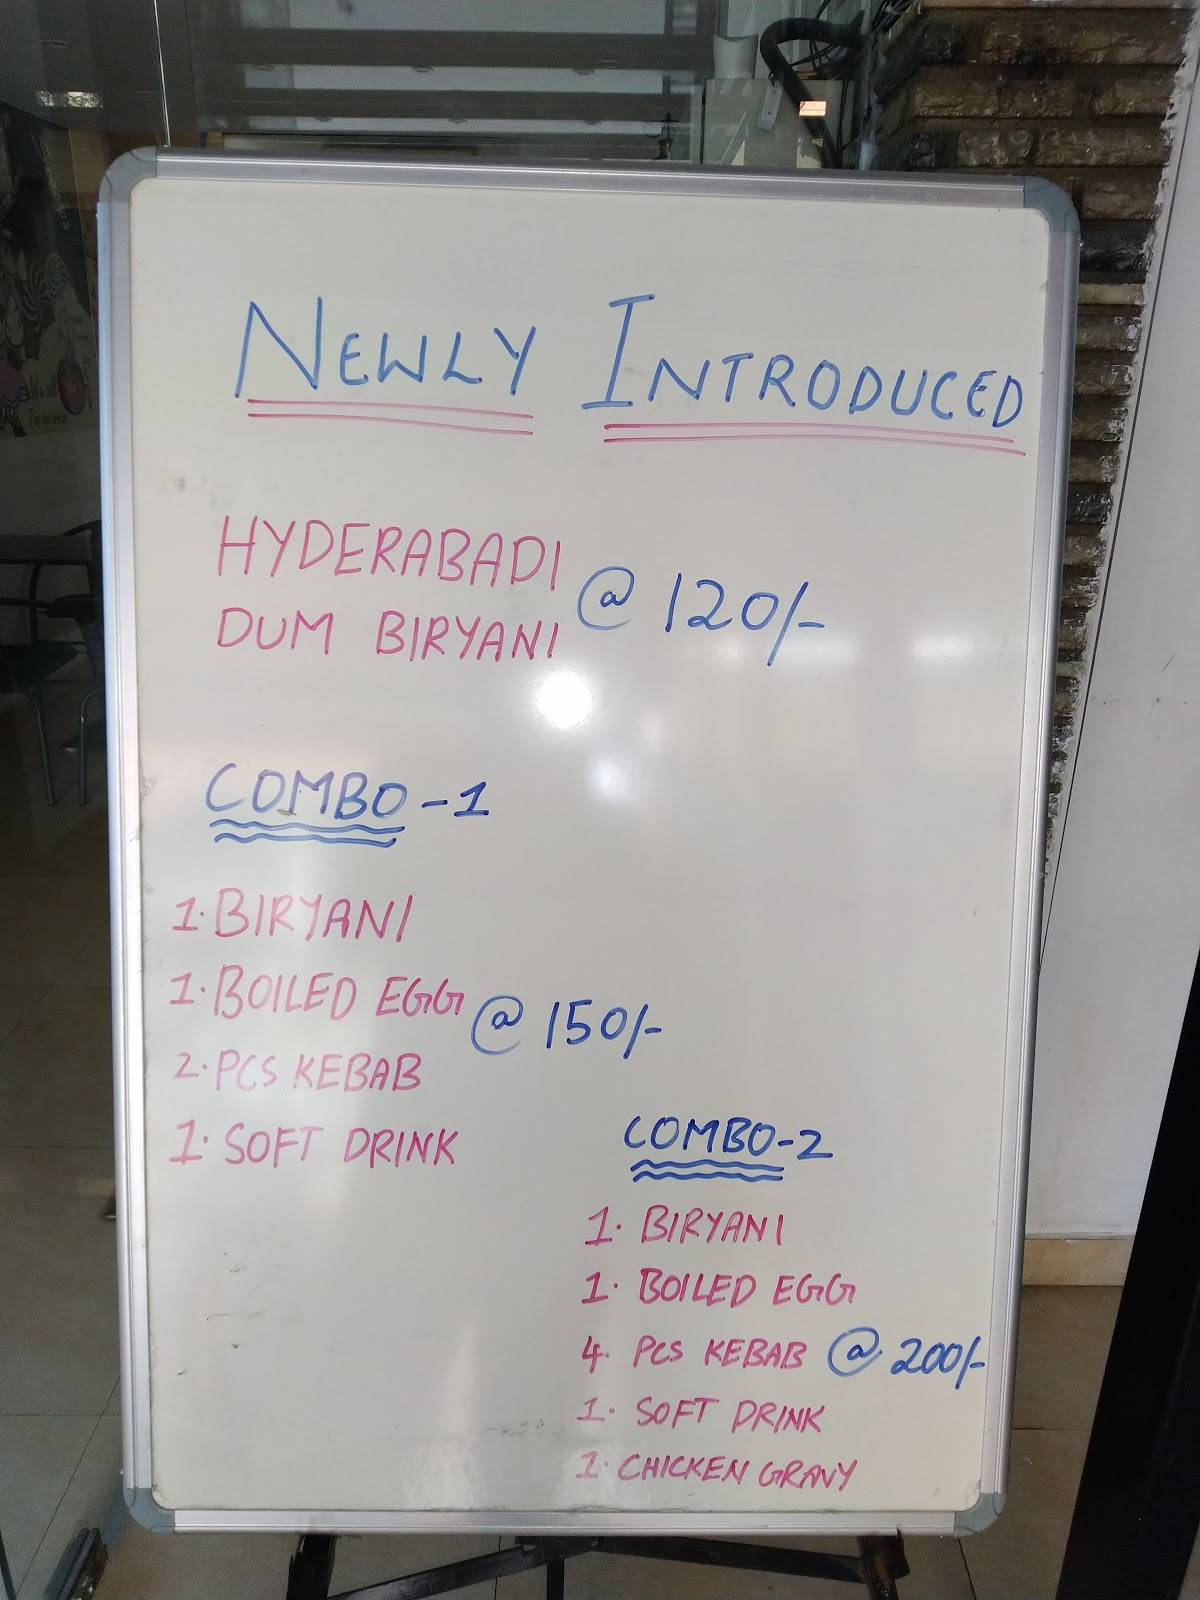 NEWLY INTRODUCED
HYDERABADI
DUM BIRYANI @ 120/-
COMBO-1
1. BIRYANI
1. BOILED EGG @ 150/-
2. PCS KEBAB
1. SOFT DRINK
COMBO-2
1. BIRYANI
1. BOILED EGG
4. PCS KEBAB @ 200/-
1. SOFT DRINK
1. CHICKEN GRAVY